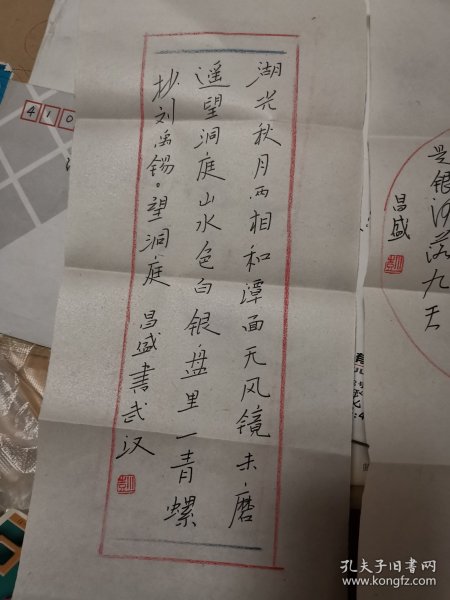 湖光秋月两相和潭面无风镜未磨
遥望洞庭山水色白银盘里一青螺
抄刘禹锡。望洞庭 昌盛书武汉
是银河落九天
昌盛
410
孔夫子旧书网
www.kongfz.com